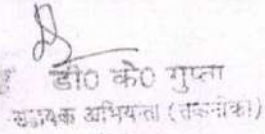 डी० के० गुप्ता
सहायक अभियन्ता (तकनीकी)